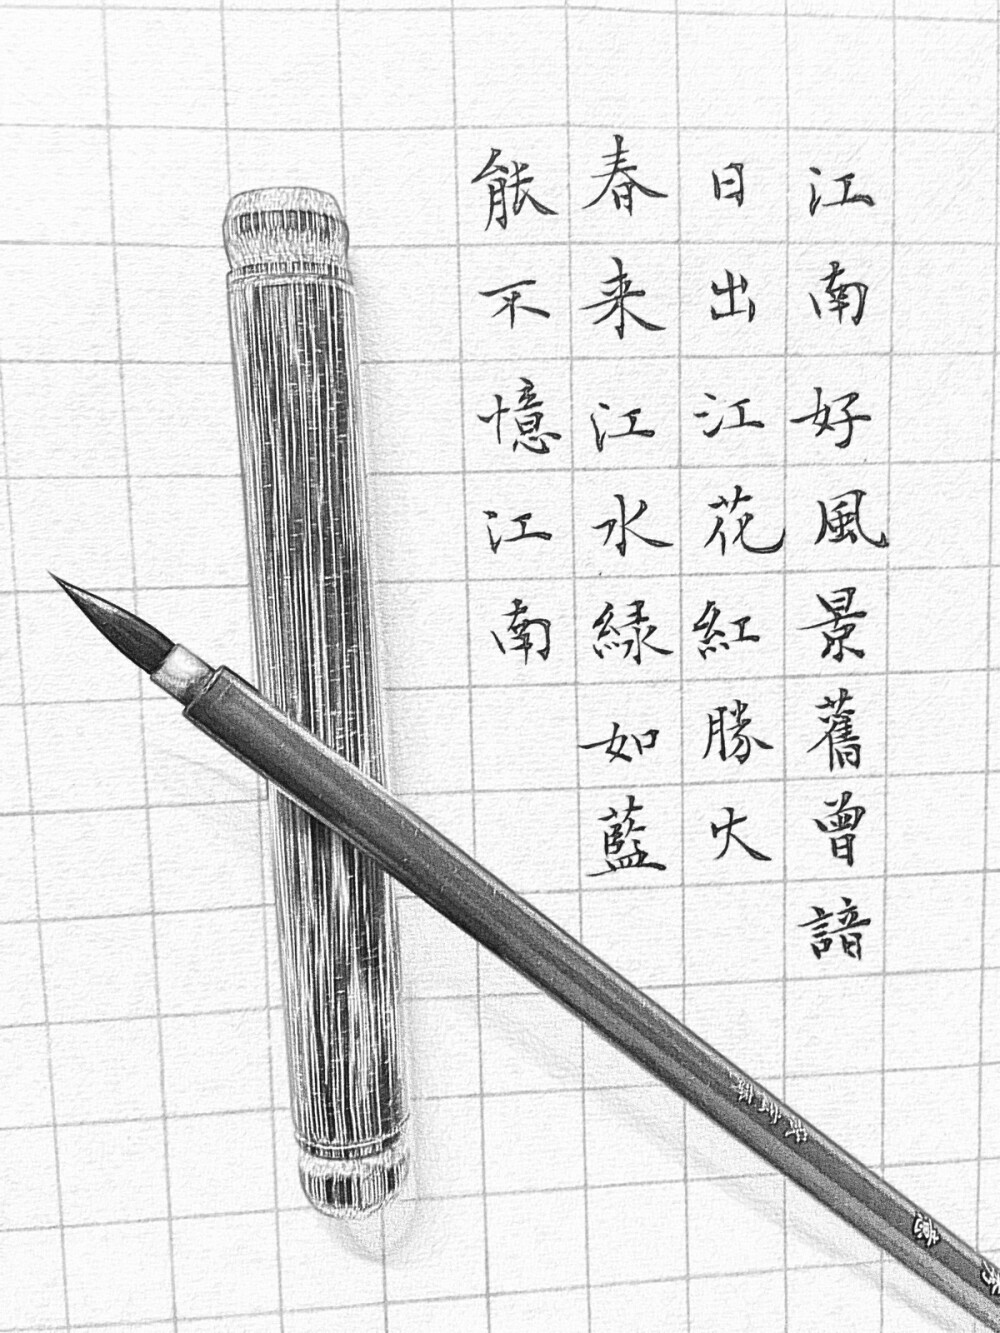 江南好風景舊曾諳
日出江花紅勝火
春来江水緑如藍
能不憶江南